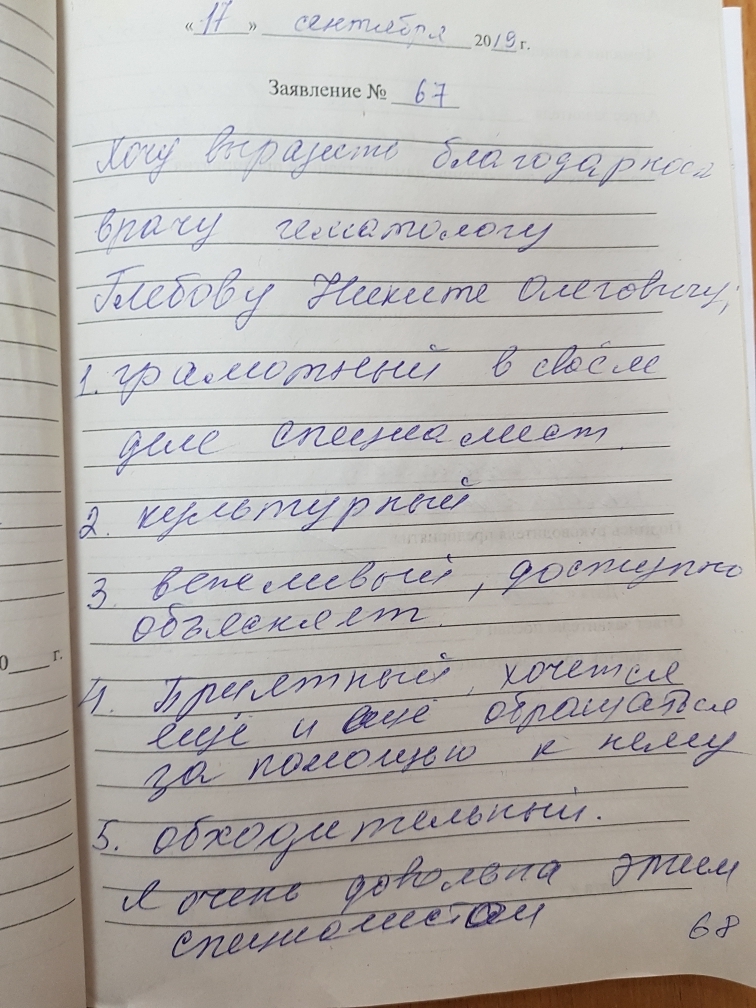 « 17 » сентября 2019 г.
Заявление № 67
Хочу выразить благодарност
врачу гематологу
Глебову Никите Олеговичу,
1. грамотный в своём
деле специалист.
2. культурный
3. вежливый, доступно
объясняет.
4. Приятный, хочется
ещё и ещё обращаться
за помощью к нему
5. обходительный.
Я очень довольна этим
специалистом
68
0 г.